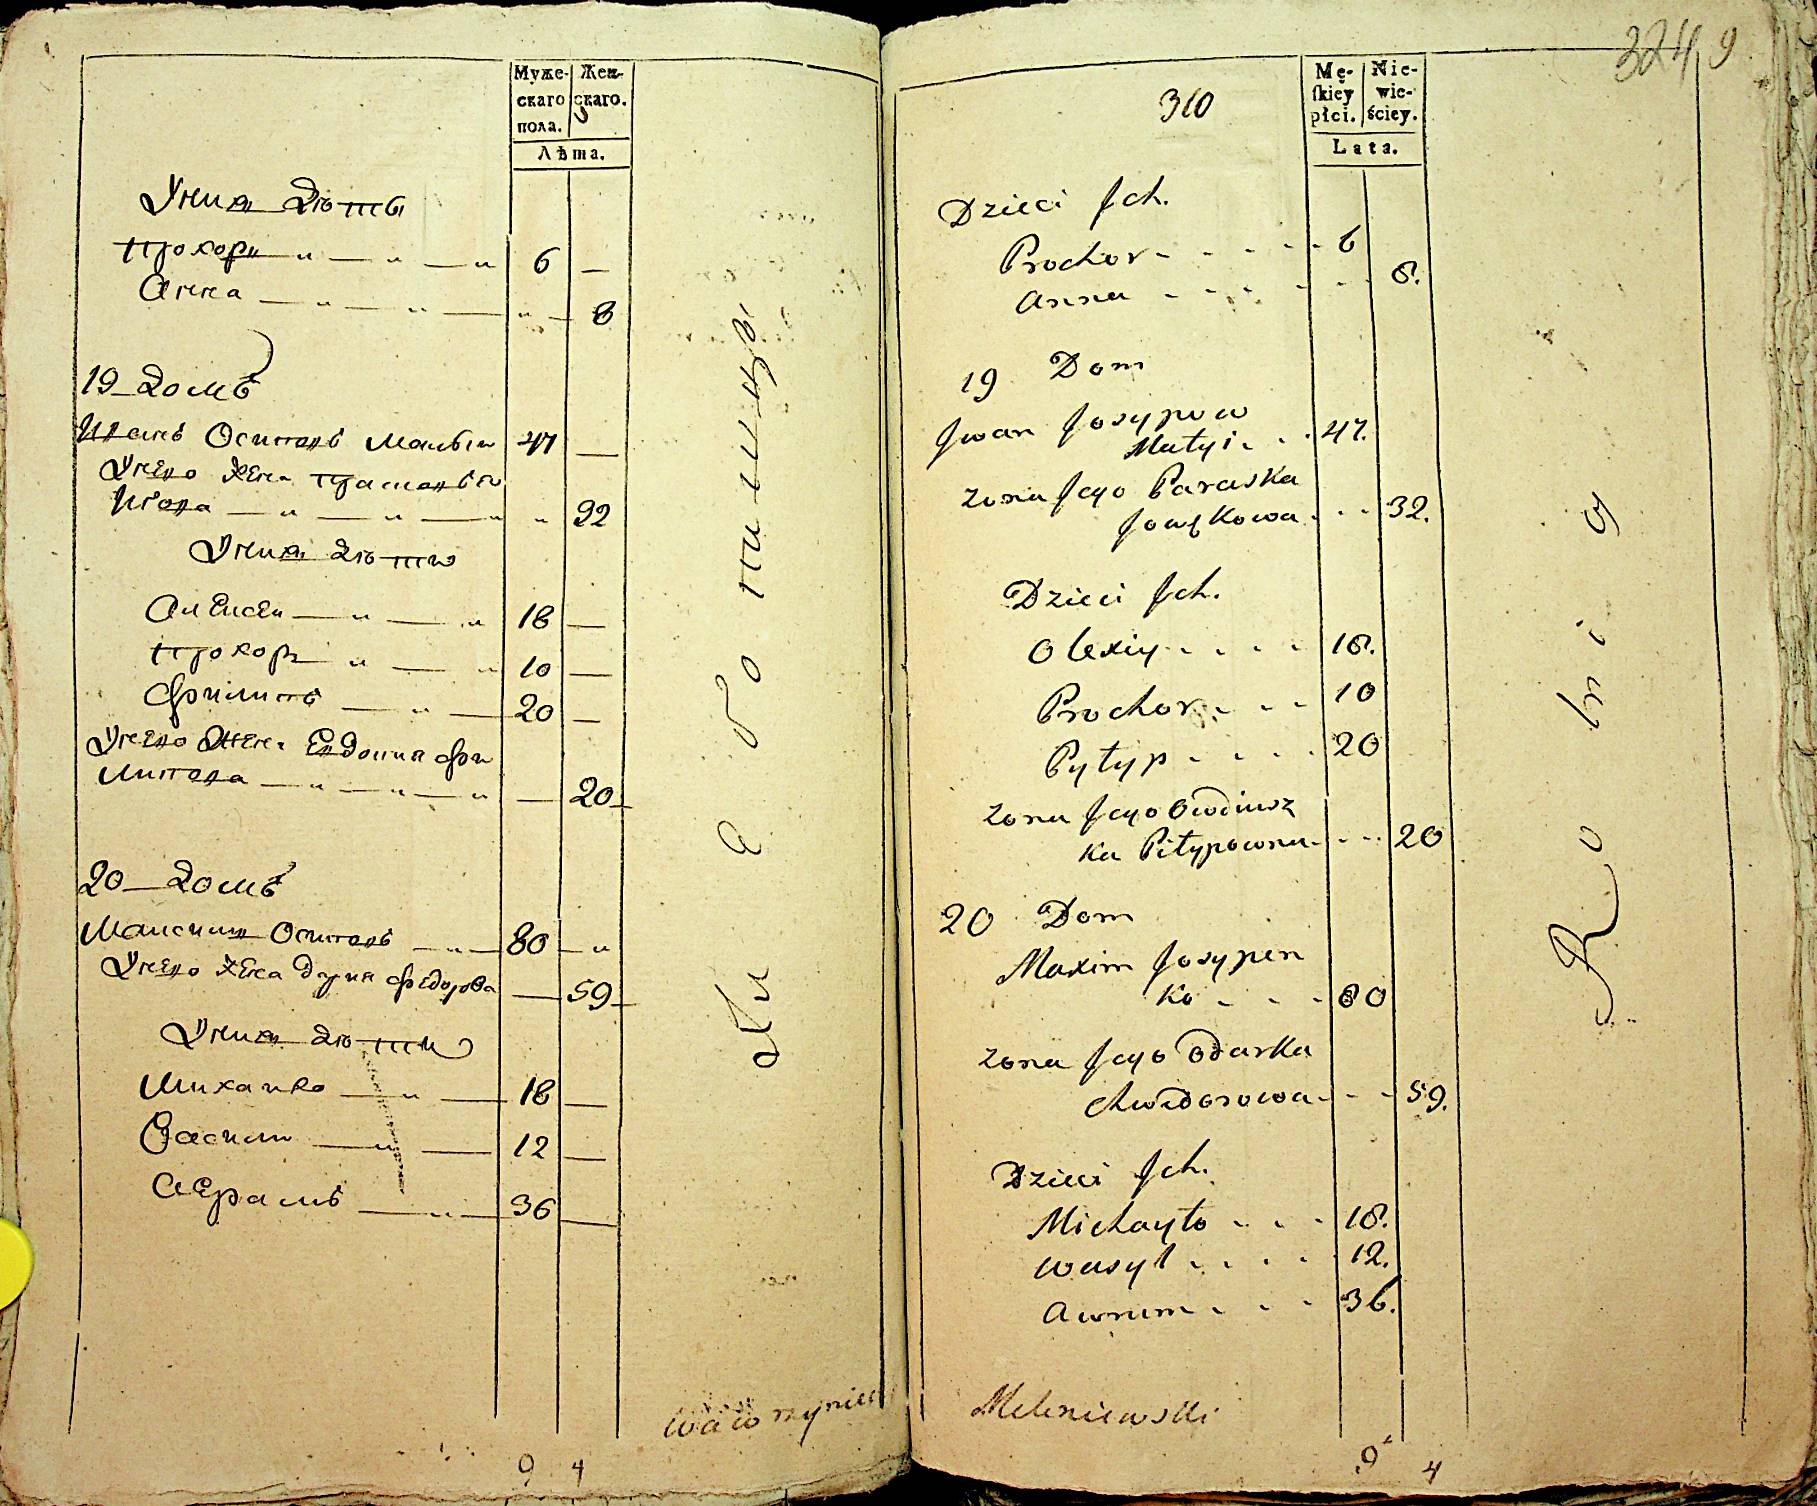 Муже-
скаго
пола.
Жен-
скаго.
Лѣта.
У них дѣты
Прохоръ 6 —
Анна 8
19 домъ
Иванъ Осиповъ 47 —
У него жена
32
У них дѣти
Алексей 18 —
Прохоръ 10 —
Филипъ 20 —
У него жена Евдокия Фи
липова — 20
20 домъ
Максимъ Осиповъ 80
У него жена Дария Федорова — 59
У них дѣти
Михайло 18 —
Васили 12 —
Аврамъ 36 —
9 4
324 9
310
Mę-
skiey
płci.
Nie-
wie-
ściey.
Lata.
Dzieci Jch.
Prochor 6
Anna 8.
19 Dom
Jwan Josypow
Matyi 47.
zona Jego Paraska
Jowkowa 32.
Dzieci Jch.
Olexiy 18.
Prochor 10
Pyłyp 20
zona Jego Owdiusz
ka Piłypowna 20
20 Dom
Maxim Josypen
ko 80
zona Jego Odarka
Chwedorowa 59.
Dzieci Jch.
Michayło 18.
Wasyl 12.
Awram 36.
Meleniewski
9 4